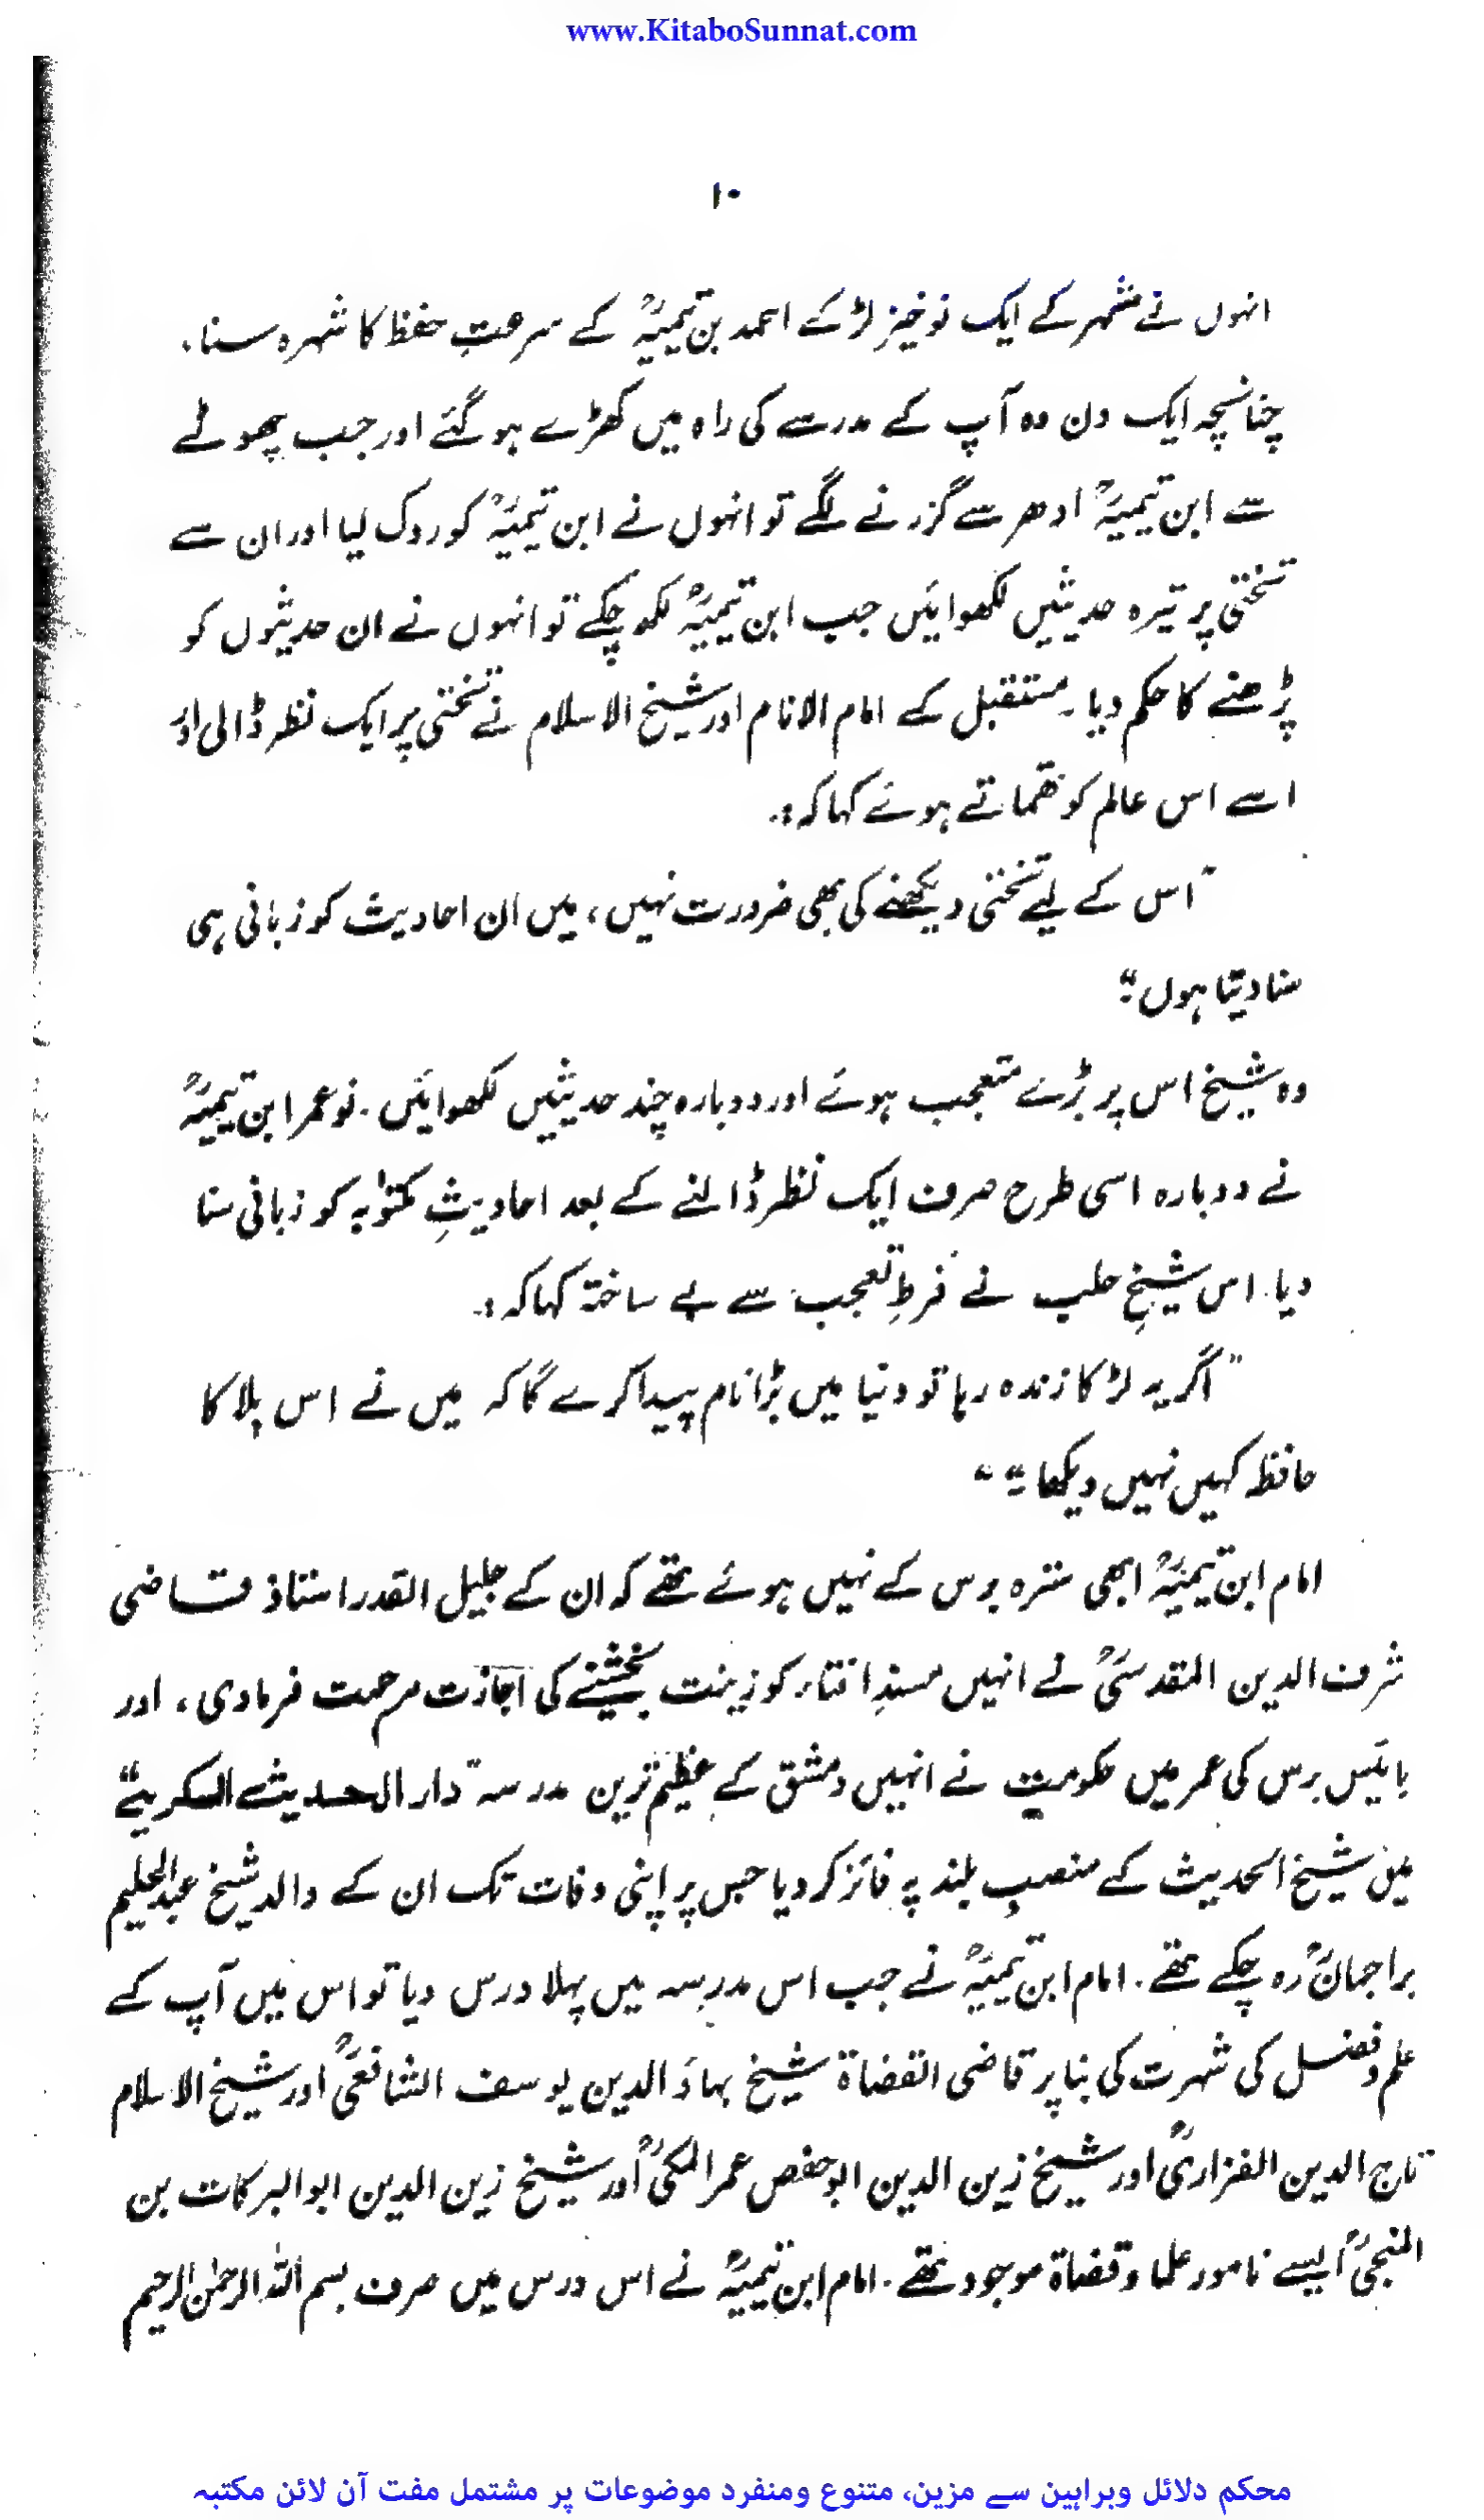 www.KitaboSunnat.com
۱۰
انہوں نے شہر کے ایک نوخیز لڑکے احمد بن تیمیہؒ کے سرعتِ حفظ کا شہرہ سنا،
چنانچہ ایک دن وہ آپ کے مدرسے کی راہ میں کھڑے ہو گئے اور جب چھوٹے
سے ابن تیمیہؒ ادھر سے گزرنے لگے تو انہوں نے ابن تیمیہؒ کو روک لیا اور ان سے
تختی پر تیرہ حدیثیں لکھوائیں جب ابن تیمیہؒ لکھ چکے تو انہوں نے ان حدیثوں کو
پڑھنے کا حکم دیا۔ مستقبل کے امام الانام اور شیخ الاسلام نے تختی پر ایک نظر ڈالی اور
اسے اس عالم کو تھماتے ہوئے کہا کہ :۔
"اس کے لیے تختی دیکھنے کی بھی ضرورت نہیں، میں ان احادیث کو زبانی ہی
سنا دیتا ہوں"
وہ شیخ اس پر بڑے متعجب ہوئے اور دوبارہ چند حدیثیں لکھوائیں۔ نوعمر ابن تیمیہؒ
نے دوبارہ اسی طرح صرف ایک نظر ڈالنے کے بعد احادیثِ مکتوبہ کو زبانی سنا
دیا۔ اس شیخِ حلب نے فرطِ تعجب سے بے ساختہ کہا کہ :۔
"اگر یہ لڑکا زندہ رہا تو دنیا میں بڑا نام پیدا کرے گا کہ میں نے اس بلا کا
حافظ کہیں نہیں دیکھا"
امام ابن تیمیہؒ ابھی سترہ برس کے نہیں ہوئے تھے کہ ان کے جلیل القدر استاذ قاضی
شرف الدین المقدسیؒ نے انہیں مسندِ افتاء کو زینت بخشنے کی اجازت مرحمت فرما دی، اور
بائیس برس کی عمر میں حکومت نے انہیں دمشق کے عظیم ترین مدرسہ "دار الحدیث السکریۃ"
میں شیخ الحدیث کے منصبِ بلند پہ فائز کر دیا جس پر اپنی وفات تک ان کے والد شیخ عبدالحلیم
براجمانؒ رہ چکے تھے۔ امام ابن تیمیہؒ نے جب اس مدرسہ میں پہلا درس دیا تو اس میں آپ کے
علم و فضل کی شہرت کی بنا پر قاضی القضاۃ شیخ بہاؤ الدین یوسف الشافعیؒ اور شیخ الاسلام
تاج الدین الفزاریؒ اور شیخ زین الدین ابو حفص عمر المکیؒ اور شیخ زین الدین ابو البرکات بن
المنجیؒ ایسے نامور علما و قضاۃ موجود تھے۔ امام ابن تیمیہؒ نے اس درس میں صرف بسم اللہ الرحمٰن الرحیم
محکم دلائل وبراہین سے مزین، متنوع ومنفرد موضوعات پر مشتمل مفت آن لائن مکتبہ